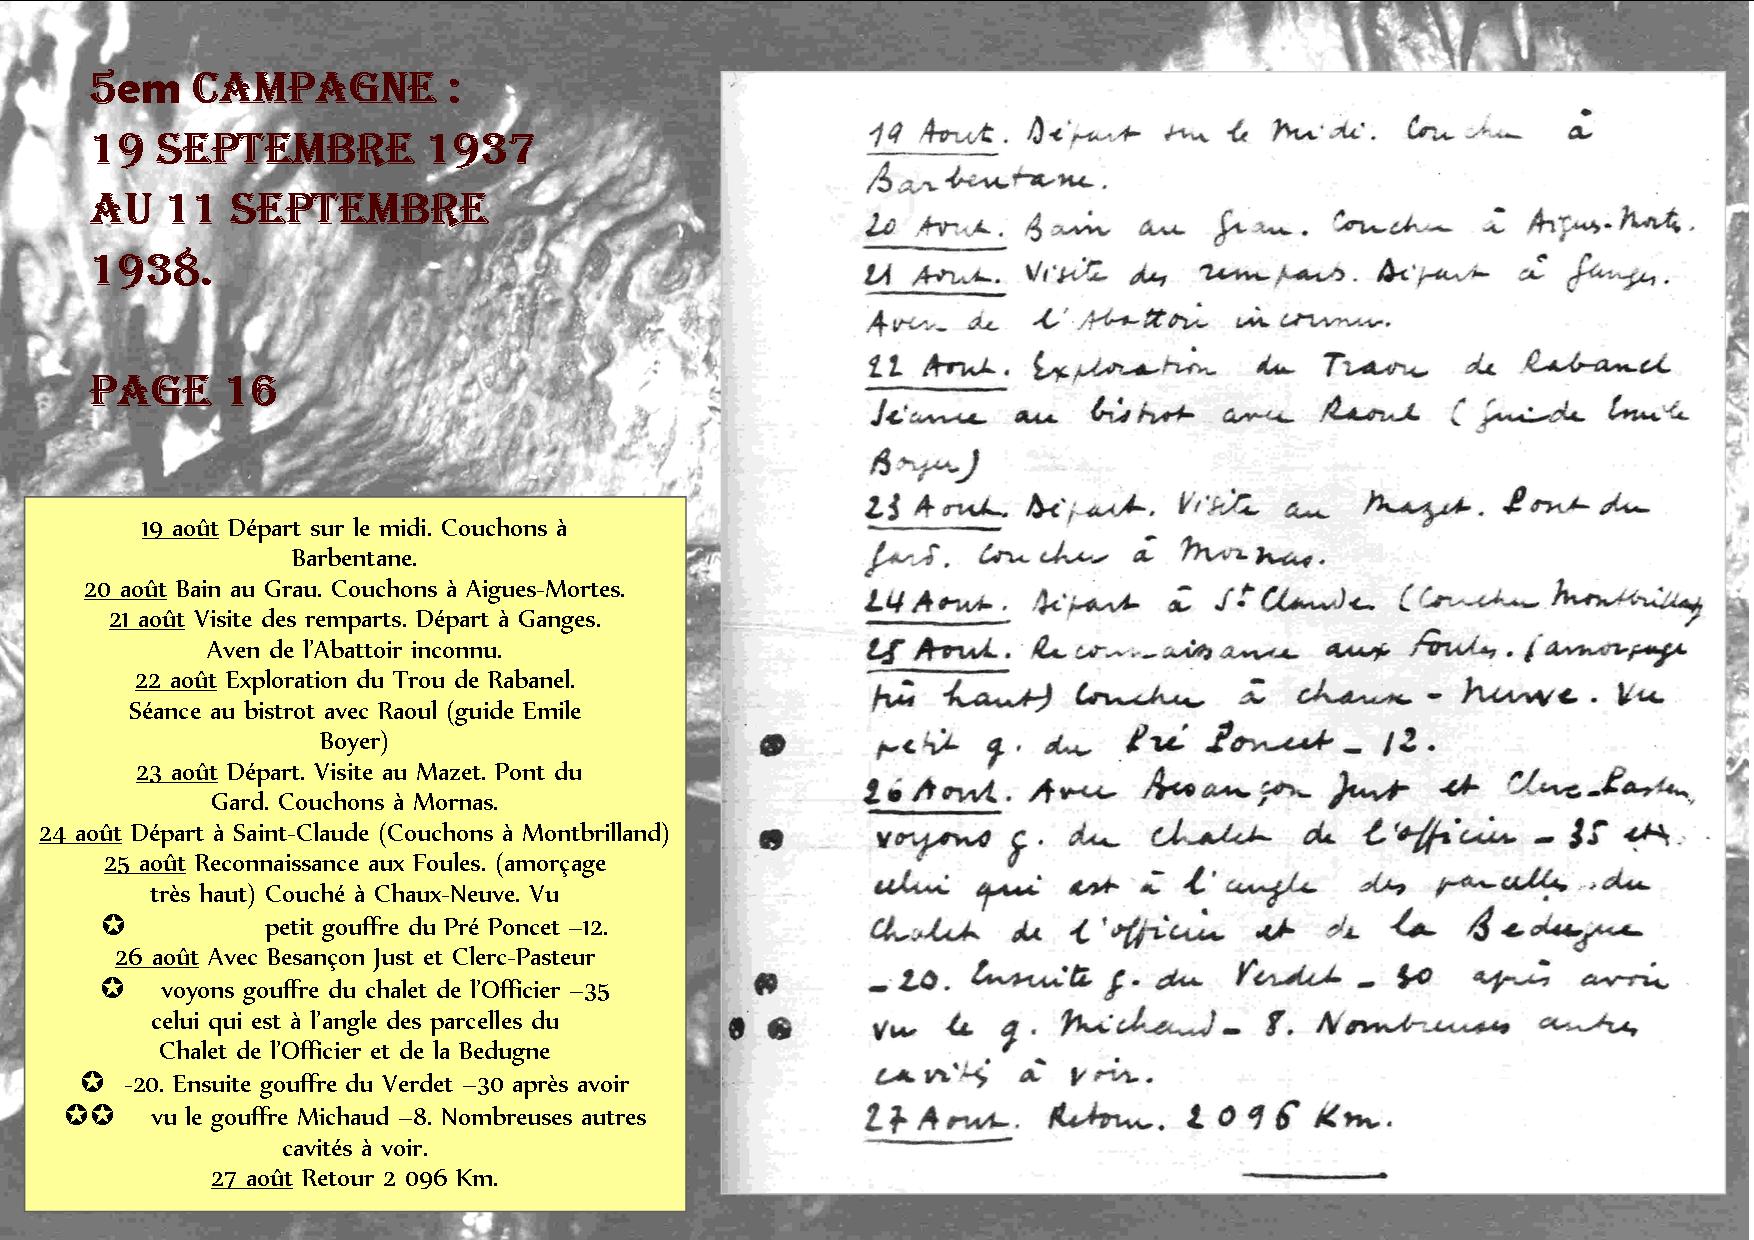 5em CAMPAGNE :
19 SEPTEMBRE 1937
AU 11 SEPTEMBRE
1938.
PAGE 16
19 août Départ sur le midi. Couchons à
Barbentane.
20 août Bain au Grau. Couchons à Aigues-Mortes.
21 août Visite des remparts. Départ à Ganges.
Aven de l'Abattoir inconnu.
22 août Exploration du Trou de Rabanel.
Séance au bistrot avec Raoul (guide Emile
Boyer)
23 août Départ. Visite au Mazet. Pont du
Gard. Couchons à Mornas.
24 août Départ à Saint-Claude (Couchons à Montbrilland)
25 août Reconnaissance aux Foules. (amorçage
très haut) Couché à Chaux-Neuve. Vu
✪ petit gouffre du Pré Poncet –12.
26 août Avec Besançon Just et Clerc-Pasteur
✪ voyons gouffre du chalet de l'Officier –35
celui qui est à l'angle des parcelles du
Chalet de l'Officier et de la Bedugne
✪ -20. Ensuite gouffre du Verdet –30 après avoir
✪✪ vu le gouffre Michaud –8. Nombreuses autres
cavités à voir.
27 août Retour 2 096 Km.
19 Aout. Départ sur le Midi. Coucher à
Barbentane.
20 Aout. Bain au Grau. Coucher à Aigues-Mortes.
21 Aout. Visite des remparts. Départ à Ganges.
Aven de l'Abattoir inconnu.
22 Aout. Exploration du Trou de Rabanel
Séance au bistrot avec Raoul (guide Emile
Boyer)
23 Aout. Départ. Visite au Mazet. Pont du
Gard. Coucher à Mornas.
24 Aout. Départ à St Claude (Coucher Montbrilland
25 Aout. Reconnaissance aux Foules. (amorçage
très haut) Coucher à Chaux-Neuve. Vu
petit g. du Pré Poncet - 12.
26 Aout. Avec Besançon Just et Clerc-Pasteur,
voyons g. du chalet de l'officier - 35 et
celui qui est à l'angle des parcelles du
Chalet de l'officier et de la Bedugne
- 20. Ensuite g. du Verdet - 30 après avoir
vu le g. Michaud - 8. Nombreuses autres
cavités à voir.
27 Aout. Retour. 2096 Km.